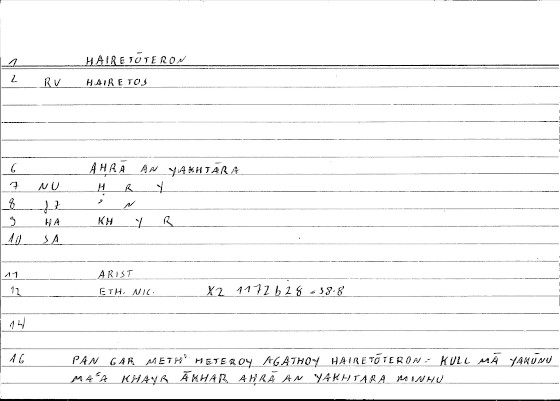 1 HAIRETŌTERON
2 RV HAIRETOS
6 AḤRĀ AN YAKHTĀRA
7 NU Ḥ R Y
8 J7 ʾ N
9 HA KH Y R
10 SA
11 ARIST
12 ETH. NIC. X2 1172b28 = 58.8
14
16 PAN GAR METH' HETEROY AGATHOY HAIRETŌTERON = KULL MĀ YAKŪNU
MAʿA KHAYR ĀKHAR AḤRĀ AN YAKHTARA MINHU